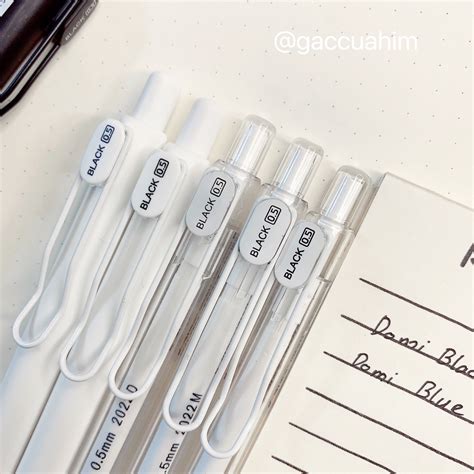 @gaccuahim
BLACK 0.5
BLACK 0.5
BLACK 0.5
BLACK 0.5
BLACK 0.5
0.5mm 2022
0.5mm 2022M
Dami Blac
Dami Blue